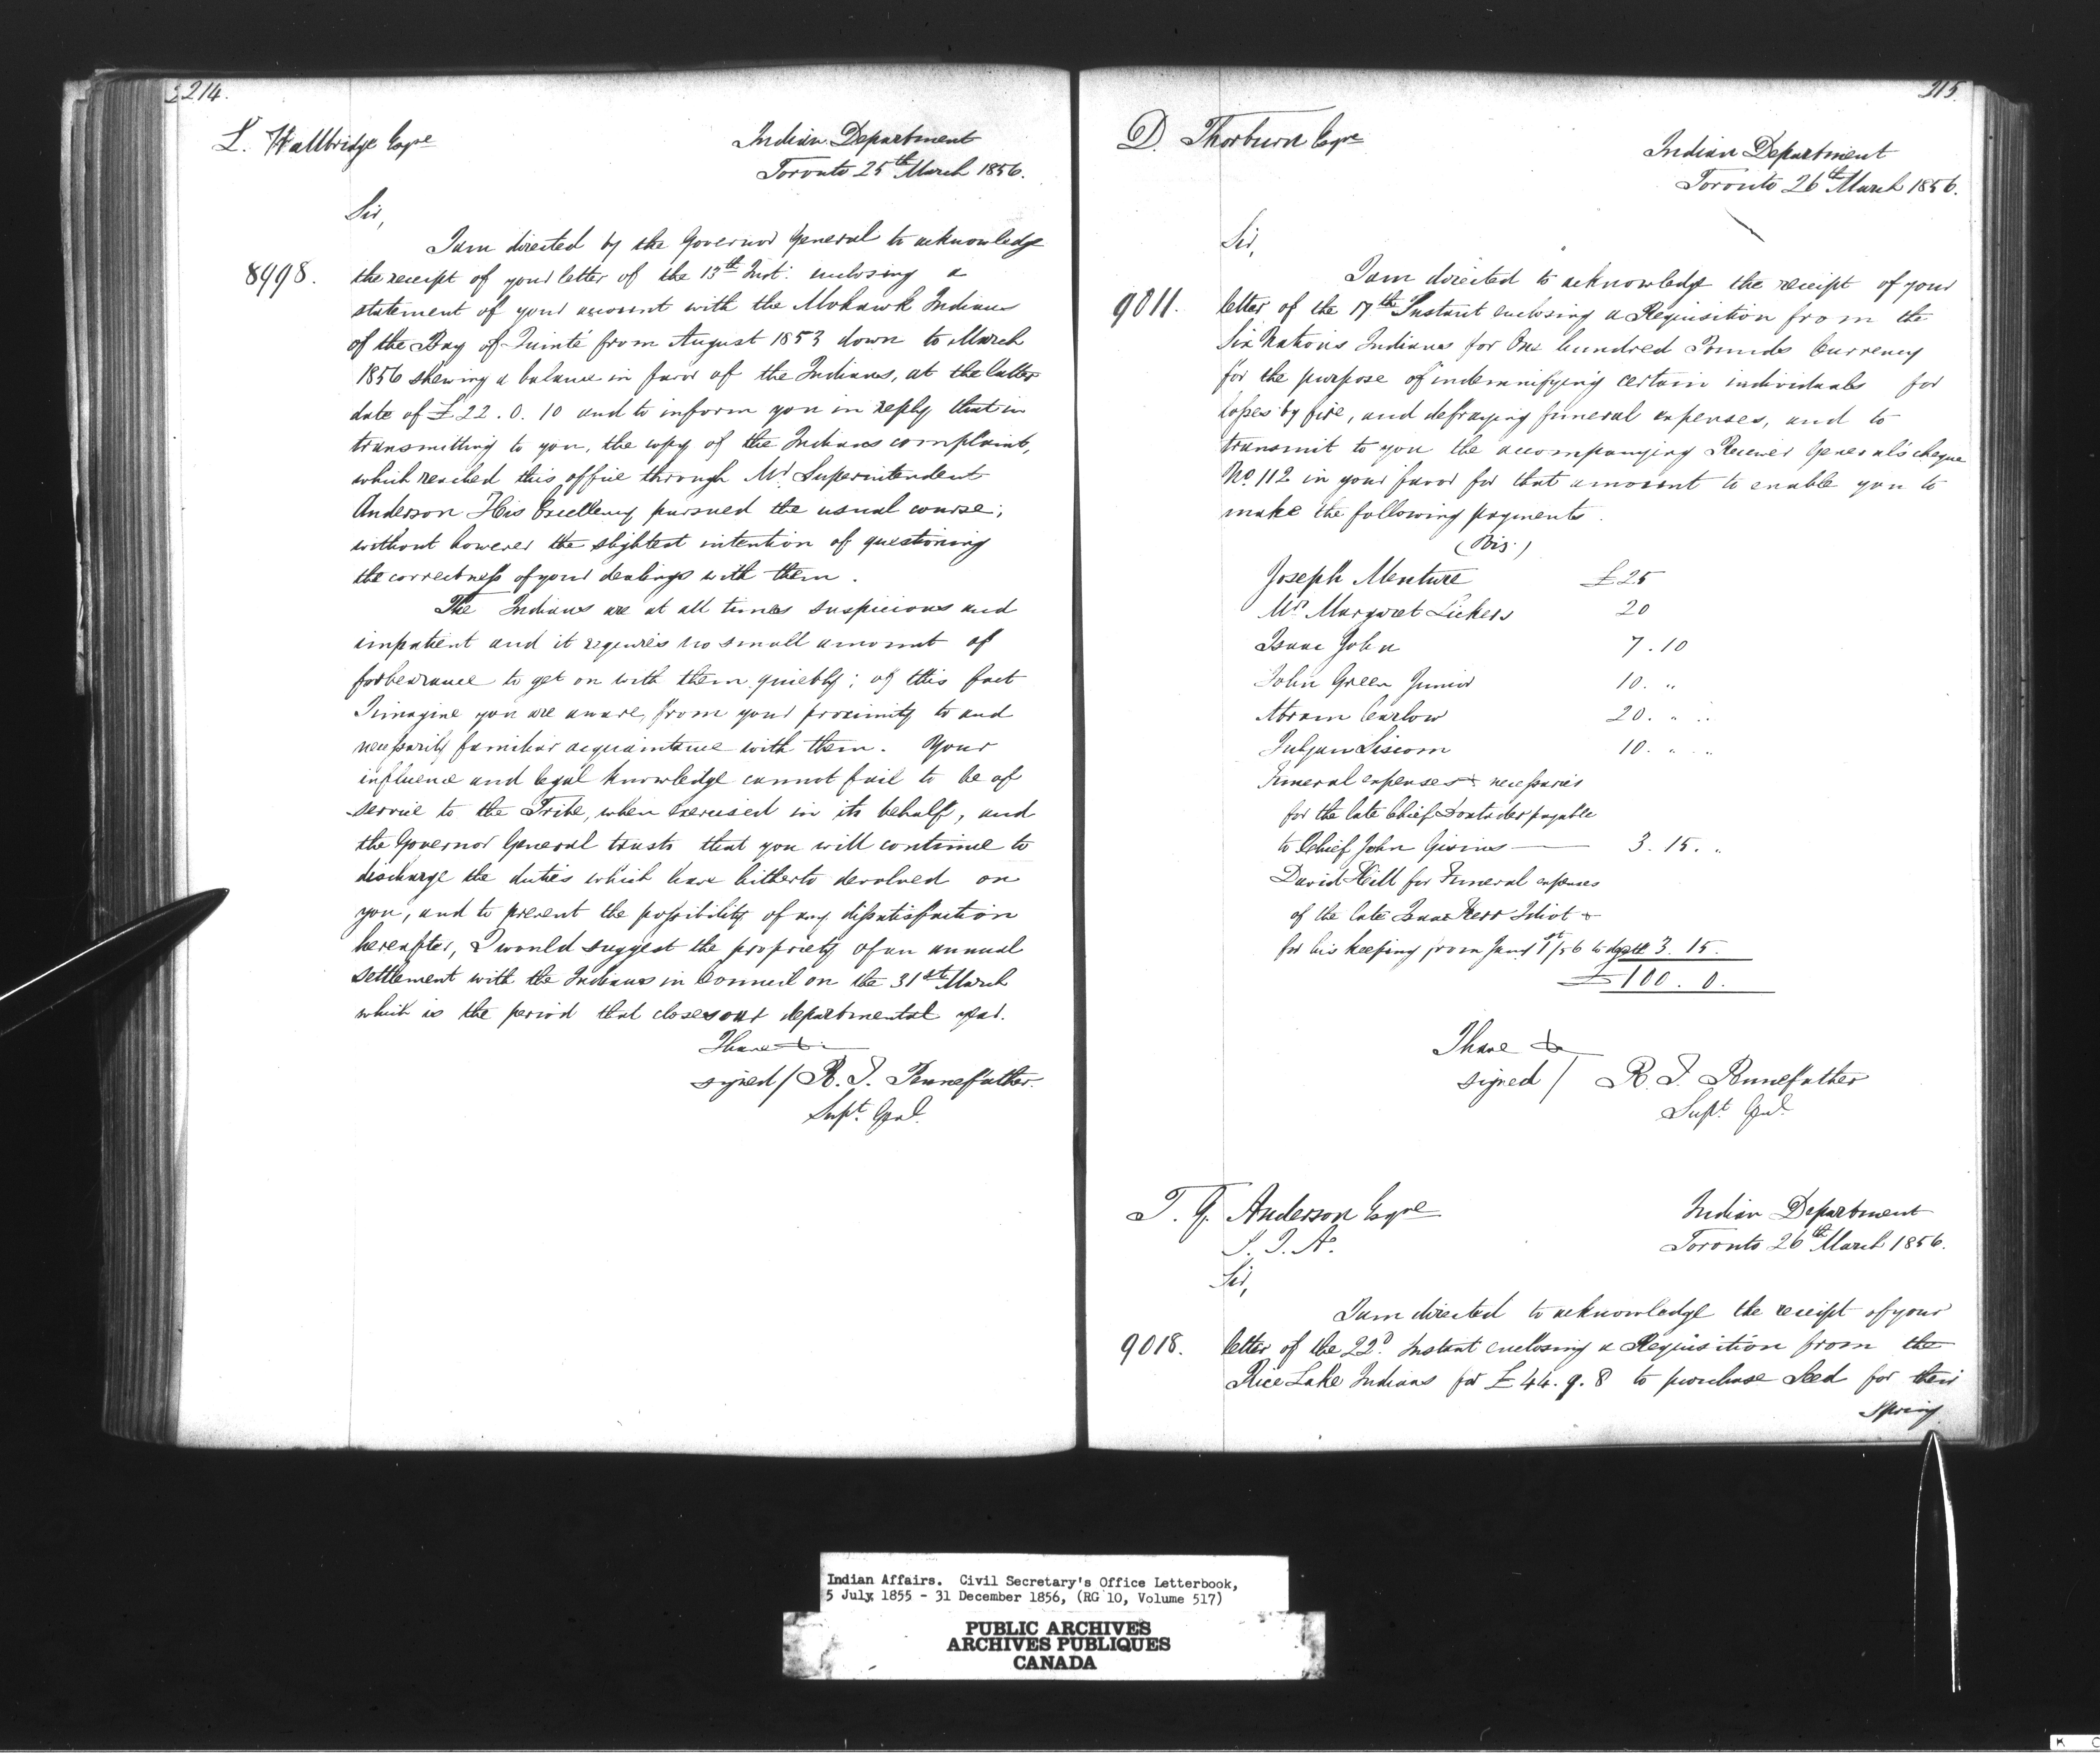 214.
L. Wallbridge Esqre
Indian Department
Toronto 25th March 1856.
Sir,
I am directed by the Governor General to acknowledge
8998.
the receipt of your letter of the 13th Inst: enclosing a
statement of your account with the Mohawk Indians
of the Bay of Quinté from August 1853 down to March
1856 shewing a balance in favor of the Indians, at the latter
date of £22.0.10 and to inform you in reply that in
transmitting to you, the copy of the Indians complaint,
which reached this office through Mr. Superintendent
Anderson His Excellency pursued the usual course;
without however the slightest intention of questioning
the correctness of your dealings with them.
The Indians are at all times suspicious and
impatient and it requires no small amount of
forbearance to get on with them quietly; of this fact
I imagine you are aware, from your proximity to and
necessarily familiar acquaintance with them. Your
influence and legal knowledge cannot fail to be of
service to the Tribe, when exercised in its behalf, and
the Governor General trusts that you will continue to
discharge the duties which have hitherto devolved on
you, and to prevent the possibility of any dissatisfaction
hereafter, I would suggest the propriety of an annual
settlement with the Indians in Council on the 31st March
which is the period that closes our departmental year.
I have &c
signed/ R. T. Pennefather
Supt. Genl.
215.
D. Thorburn Esqre
Indian Department
Toronto 26th March 1856.
Sir,
I am directed to acknowledge the receipt of your
9011.
letter of the 17th Instant enclosing a Requisition from the
Six Nations Indians for One hundred Pounds Currency
for the purpose of indemnifying certain individuals for
losses by fire, and defraying funeral expenses, and to
transmit to you the accompanying Receiver General's cheque
No. 112 in your favor for that amount to enable you to
make the following payments.
(Viz.)
Joseph Menture £25
Mrs Margaret Lickers 20
Isaac John 7.10
John Green Junior 10. "
Abram Carlow 20. " "
Liscom 10. " "
Funeral expenses & necessaries
for the late Chief payable
to Chief John Givins — 3.15. "
David Hill for Funeral expenses
of the late Isaac Kerr Idiot &
for his keeping from Jany 1st/56 to date 3.15.
£100.0.
I have &c
signed/ R. T. Pennefather
Supt Genl.
T. G. Anderson Esqre
S. I. A.
Indian Department
Toronto 26th March 1856.
Sir,
I am directed to acknowledge the receipt of your
9018.
letter of the 22d. Instant enclosing a Requisition from the
Rice Lake Indians for £44.9.8 to purchase Seed for their
Spring
Indian Affairs. Civil Secretary's Office Letterbook,
5 July, 1855 - 31 December 1856, (RG 10, Volume 517)
PUBLIC ARCHIVES
ARCHIVES PUBLIQUES
CANADA